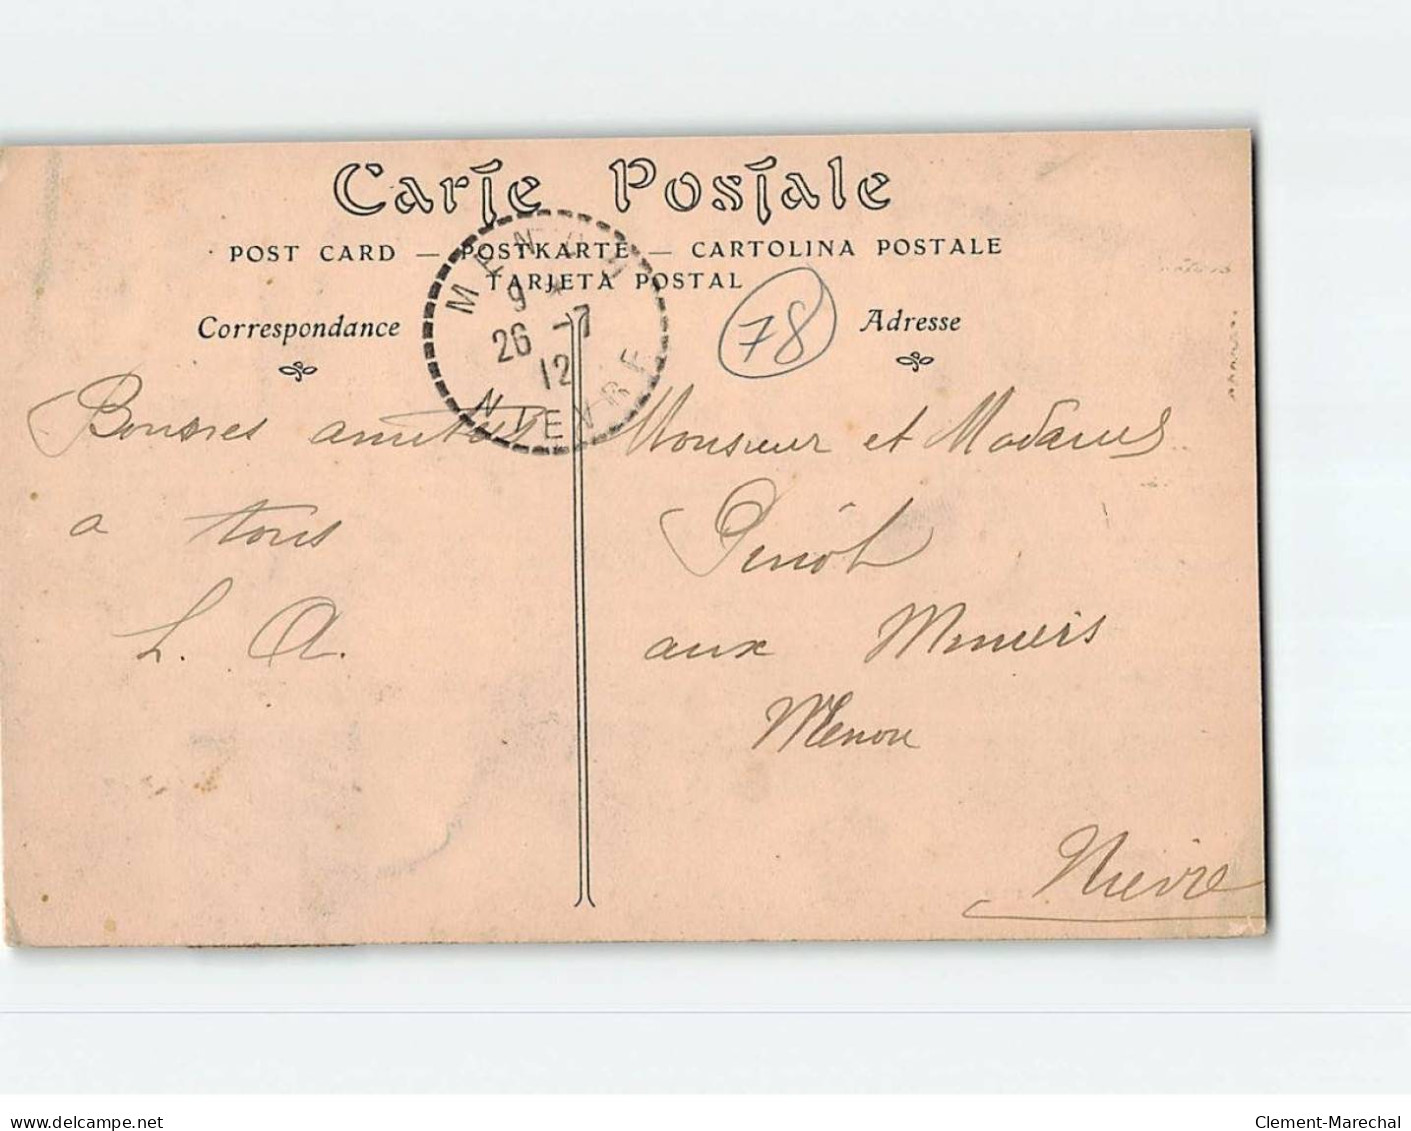 Carte Postale
POST CARD — POSTKARTE — CARTOLINA POSTALE
TARJETA POSTAL
Correspondance
Adresse
MENOU
9 *
26 -7
12
NIEVRE
78
Bonnes amitiés
a tous
L. A.
Monsieur et Madame
Pinôt
aux
Menou
Nièvre
delcampe.net
Clement-Marechal